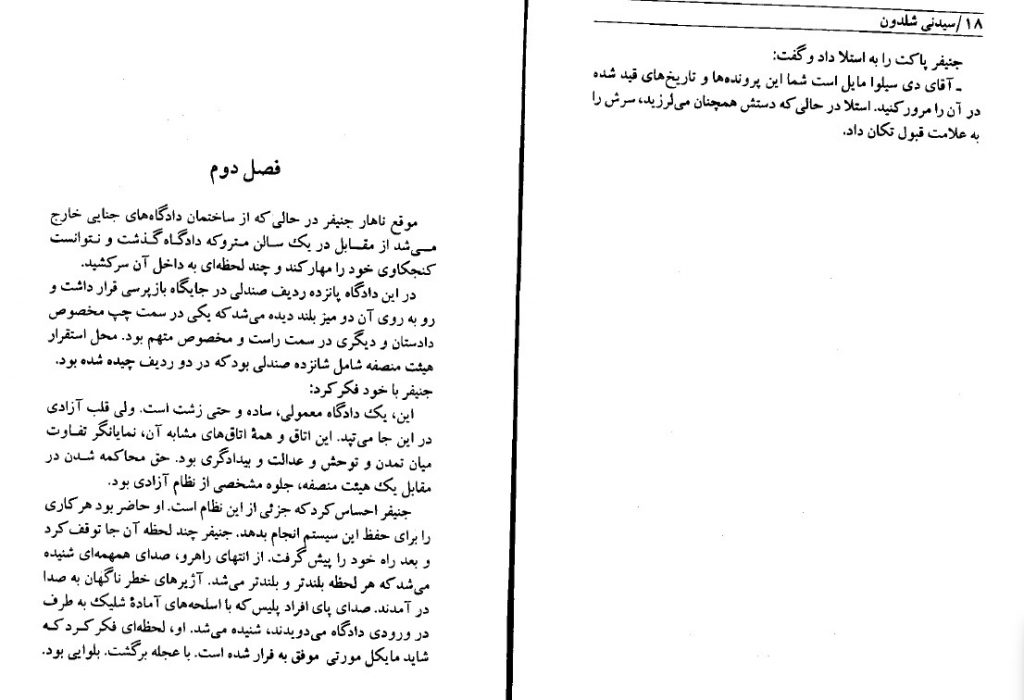 ۱۸/سیدنی شلدون
جنیفر پاکت را به استلا داد و گفت:
ـ آقای دی سیلوا مایل است شما این پرونده‌ها و تاریخ‌های قید شده
در آن را مرور کنید. استلا در حالی که دستش همچنان می‌لرزید، سرش را
به علامت قبول تکان داد.
فصل دوم
موقع ناهار جنیفر در حالی که از ساختمان دادگاه‌های جنایی خارج
می‌شد از مقابل در یک سالن متروکه دادگاه گذشت و نتوانست
کنجکاوی خود را مهار کند و چند لحظه‌ای به داخل آن سرکشید.
در این دادگاه پانزده ردیف صندلی در جایگاه بازپرسی قرار داشت و
رو به روی آن دو میز بلند دیده می‌شد که یکی در سمت چپ مخصوص
دادستان و دیگری در سمت راست و مخصوص متهم بود. محل استقرار
هیئت منصفه شامل شانزده صندلی بود که در دو ردیف چیده شده بود.
جنیفر با خود فکر کرد:
این، یک دادگاه معمولی، ساده و حتی زشت است. ولی قلب آزادی
در این جا می‌تپد. این اتاق و همهٔ اتاق‌های مشابه آن، نمایانگر تفاوت
میان تمدن و توحش و عدالت و بیدادگری بود. حق محاکمه شدن در
مقابل یک هیئت منصفه، جلوه مشخصی از نظام آزادی بود.
جنیفر احساس کرد که جزئی از این نظام است. او حاضر بود هر کاری
را برای حفظ این سیستم انجام بدهد. جنیفر چند لحظه آن جا توقف کرد
و بعد راه خود را پیش گرفت. از انتهای راهرو، صدای همهمه‌ای شنیده
می‌شد که هر لحظه بلندتر و بلندتر می‌شد. آژیرهای خطر ناگهان به صدا
در آمدند. صدای پای افراد پلیس که با اسلحه‌های آمادهٔ شلیک به طرف
در ورودی دادگاه می‌دویدند، شنیده می‌شد. او، لحظه‌ای فکر کرد که
شاید مایکل مورتی موفق به فرار شده است. با عجله برگشت. بلوایی بود.